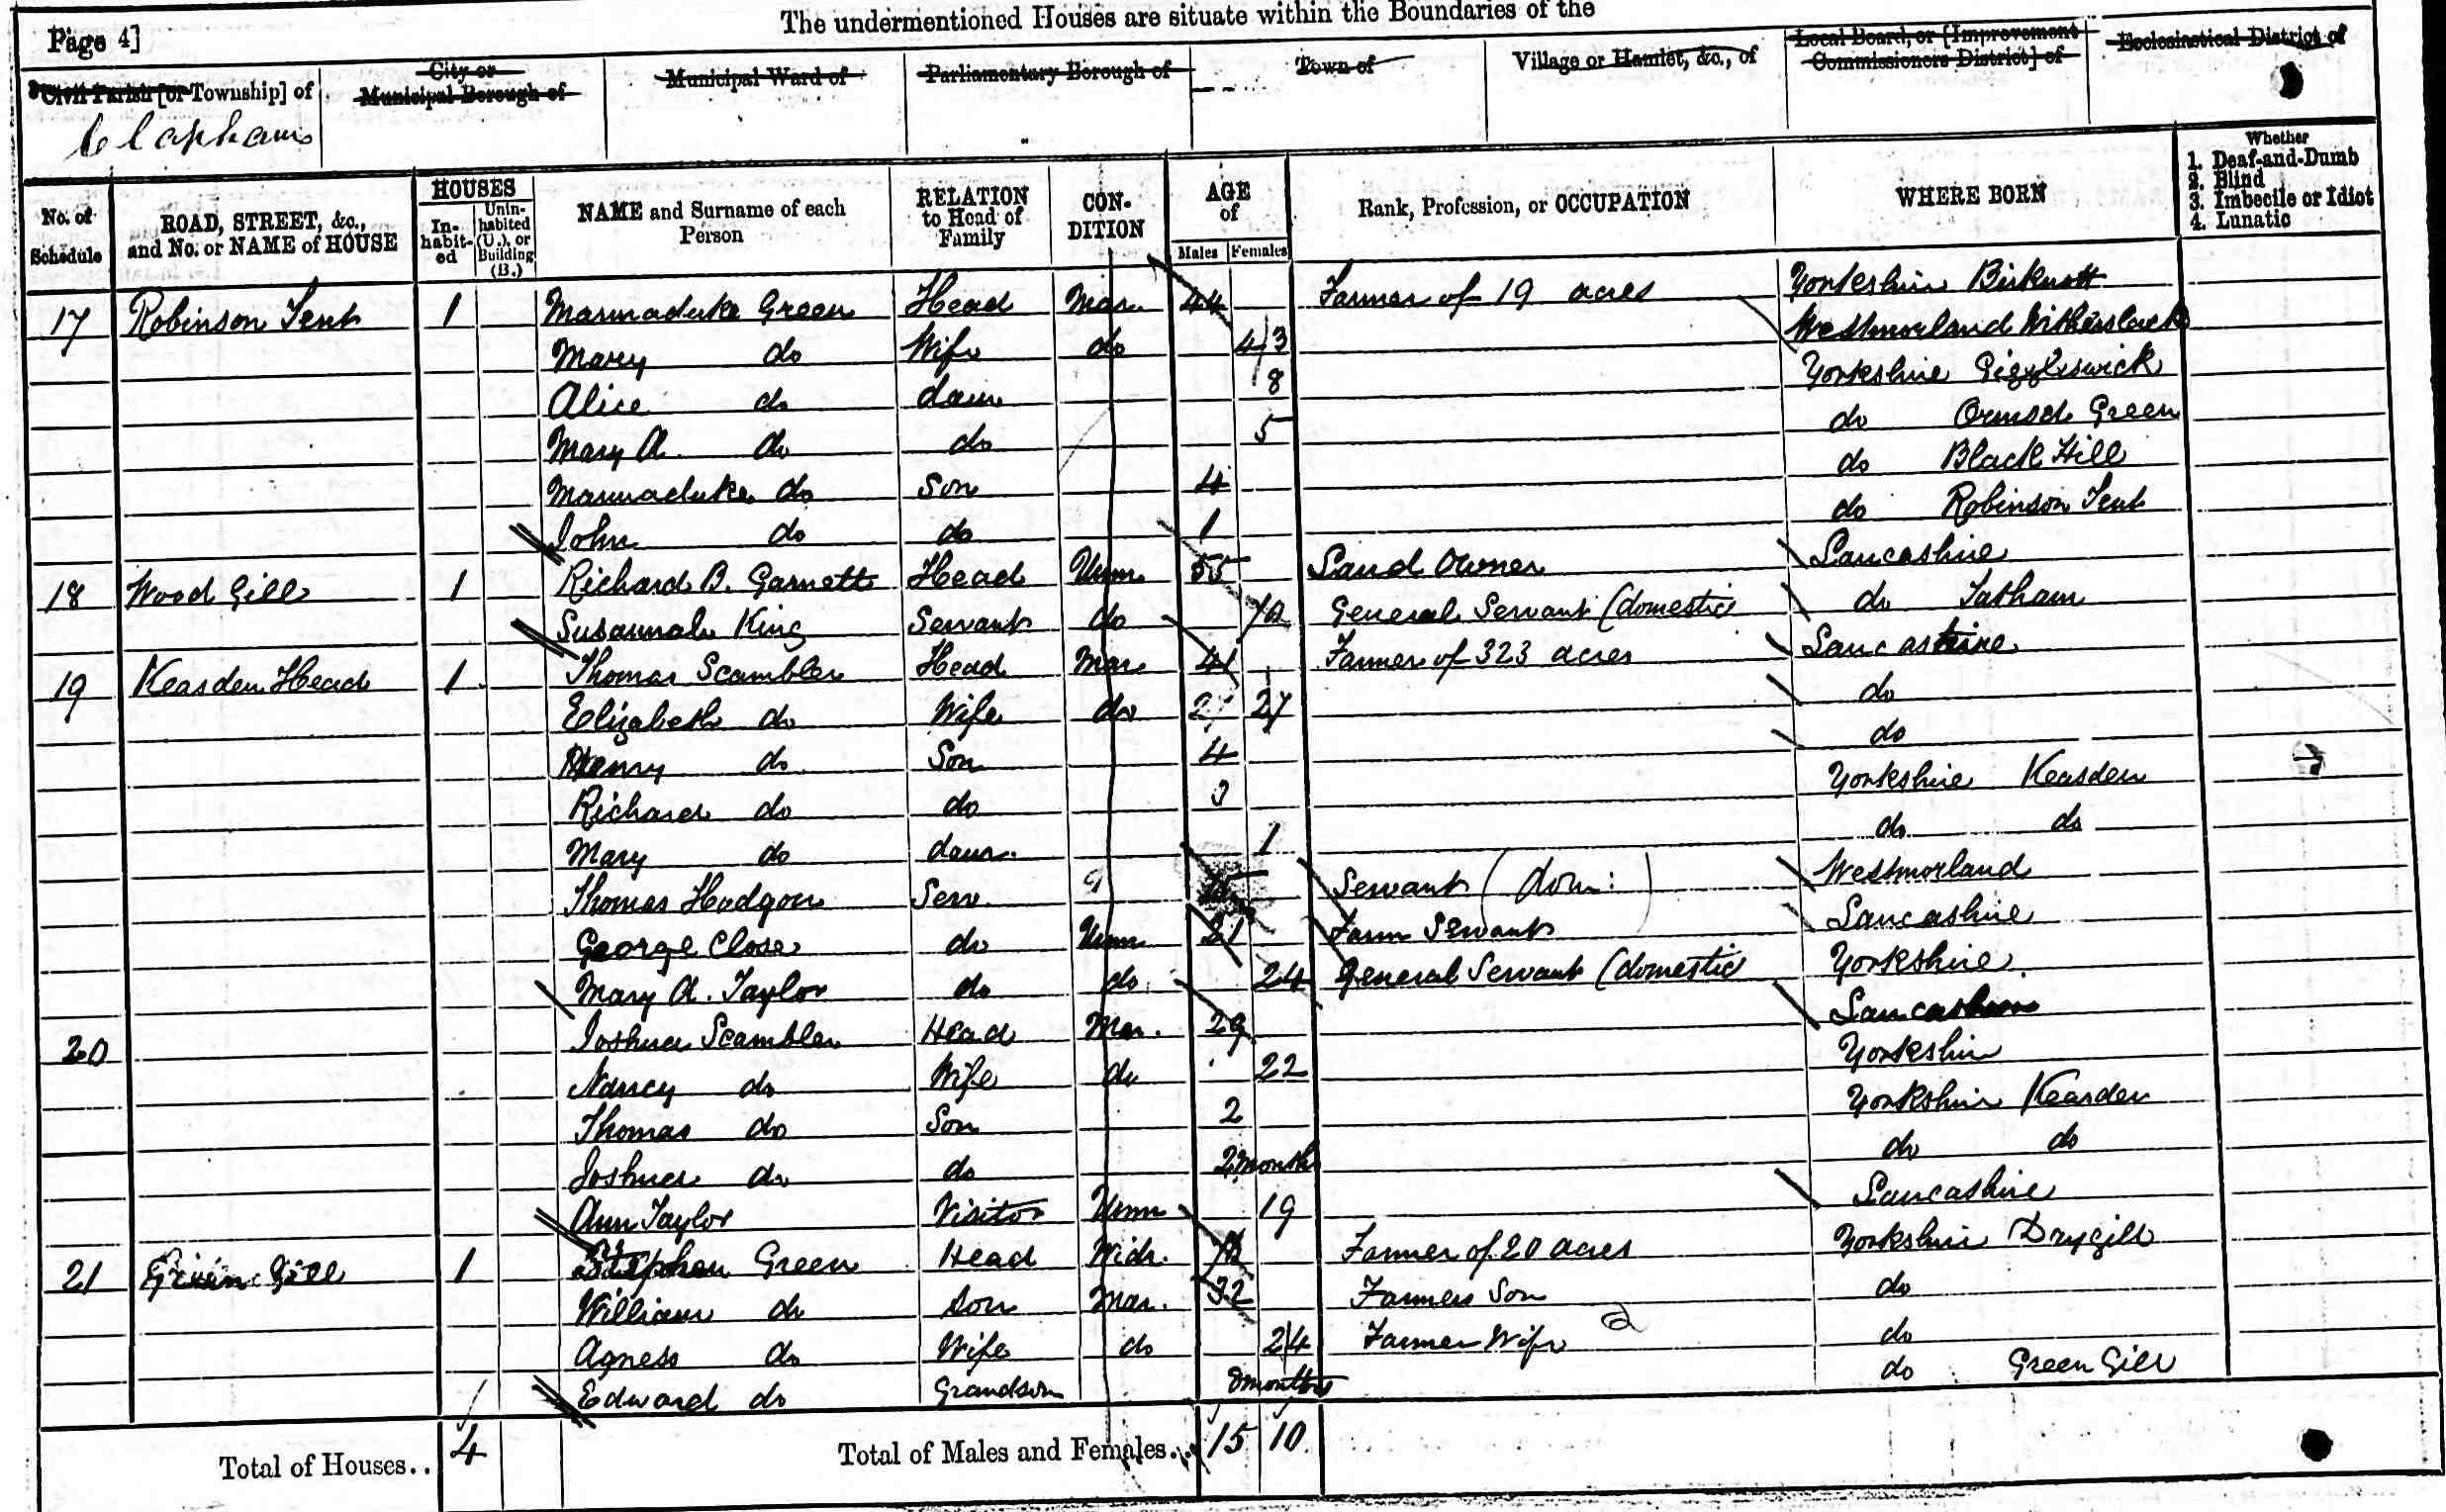 The undermentioned Houses are situate within the Boundaries of the
Page 4]
Civil Parish [or Township] of
City or Municipal Borough of
Municipal Ward of
Parliamentary Borough of
Town of
Village or Hamlet, &c., of
Local Board, or [Improvement Commissioners District] of
Ecclesiastical District of
Clapham
No. of Schedule
ROAD, STREET, &c., and No. or NAME of HOUSE
HOUSES
In-habit-ed
Unin-habited (U.), or Building (B.)
NAME and Surname of each Person
RELATION to Head of Family
CON-DITION
AGE of
Males
Females
Rank, Profession, or OCCUPATION
WHERE BORN
Whether
1. Deaf-and-Dumb
2. Blind
3. Imbecile or Idiot
4. Lunatic
17 Robinson Tent 1 Marmaduke Green Head Mar. 44 Farmer of 19 acres Yorkshire
Mary do Wife do 43 Westmorland Witherslack
Alice do daur 8 Yorkshire Giggleswick
Mary A. do do 5 do Green
Marmaduke do Son 4 do Black Hill
John do do 1 do Robinson Tent
18 Wood Gill 1 Richard B. Garnett Head Unm. 55 Land Owner Lancashire
Susannah King Servant do General Servant (domestic do Tatham
19 Keasden Head 1 Thomas Scambler Head Mar. 41 Farmer of 323 acres Lancashire
Elizabeth do Wife do 27 27 do
Henry do Son 4 do
Richard do do 3 Yorkshire Keasden
Mary do daur. 1 do do
Thomas Hodgson Serv. 15 Servant (dom:) Westmorland
George Close do Unm 21 Farm Servant Lancashire
Mary A. Taylor do do 24 General Servant (domestic Yorkshire
20 Joshua Scambler Head Mar. 29 Lancashire
Nancy do Wife do 22 Yorkshire
Thomas do Son 2 Yorkshire Keasden
Joshua do do 2 months do do
Ann Taylor Visitor Unm 19 Lancashire
21 Green Gill 1 Stephen Green Head Widr. Farmer of 20 acres Yorkshire Drygill
William do Son Mar. 32 Farmers Son do
Agness do Wife do 24 Farmer Wife do
Edward do Grandson 8 months do Green Gill
Total of Houses.. 4 Total of Males and Females... 15 10